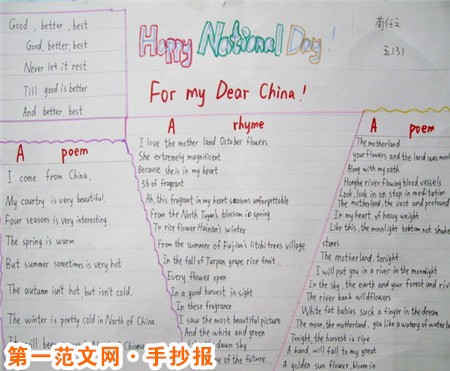 Good, better, best
Good, better, best
Never let it rest
Till good is better
And better, best
Happy National Day!
For my Dear China!
五(3)
A poem
I come from China,
My country is very beautiful.
Four seasons is very interesting.
The spring is warm
But summer sometimes is very hot
The autumn isn't hot, but isn't cold.
The winter is pretty cold in North of China.
A rhyme
I love the mother land October flowers
She extremely magnificent
Because she is in my heart
36 of fragrant
Ah, this fragrant in my heart seasons unforgettable
From the North Tuyan's blossom is spring
To rice flower Hainan's winter
From the summer of Fujian's litchi trees village
In the fall of Turpan grape rice fruit
Every flower open
In a good harvest in sight
In these fragrance
I saw the most beautiful picture
And the white and green
dawn sky
of the future
A poem
The motherland
your flowers and the land was
Along with my oath
Honghe river flowing blood vessels
Look, look in on stop in meditation
The motherland, the vast and profound
In my heart of heavy weight
Like this, the moonlight bottom not shake
stones
The motherland, tonight
I will put you in a river in the moonlight
In the sky, the earth and your forest and river
The river bank wildflowers
White fat babies suck a finger in the dream
The moon, the motherland, you like a watery of water
Tonight, the harvest is ripe
A hand, will fall to my great
A golden sun flower, bloom in
第一范文网·手抄报